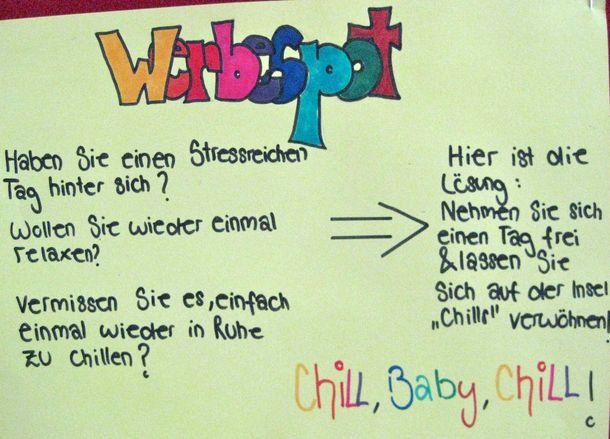 Werbespot
Haben Sie einen Stressreichen
Tag hinter sich?
Wollen Sie wieder einmal
relaxen?
Vermissen Sie es, einfach
einmal wieder in Ruhe
zu chillen?
Hier ist die
Lösung:
Nehmen Sie sich
einen Tag frei
& lassen Sie
sich auf der Insel
„Chills" verwöhnen!
Chill, Baby, Chill!
c